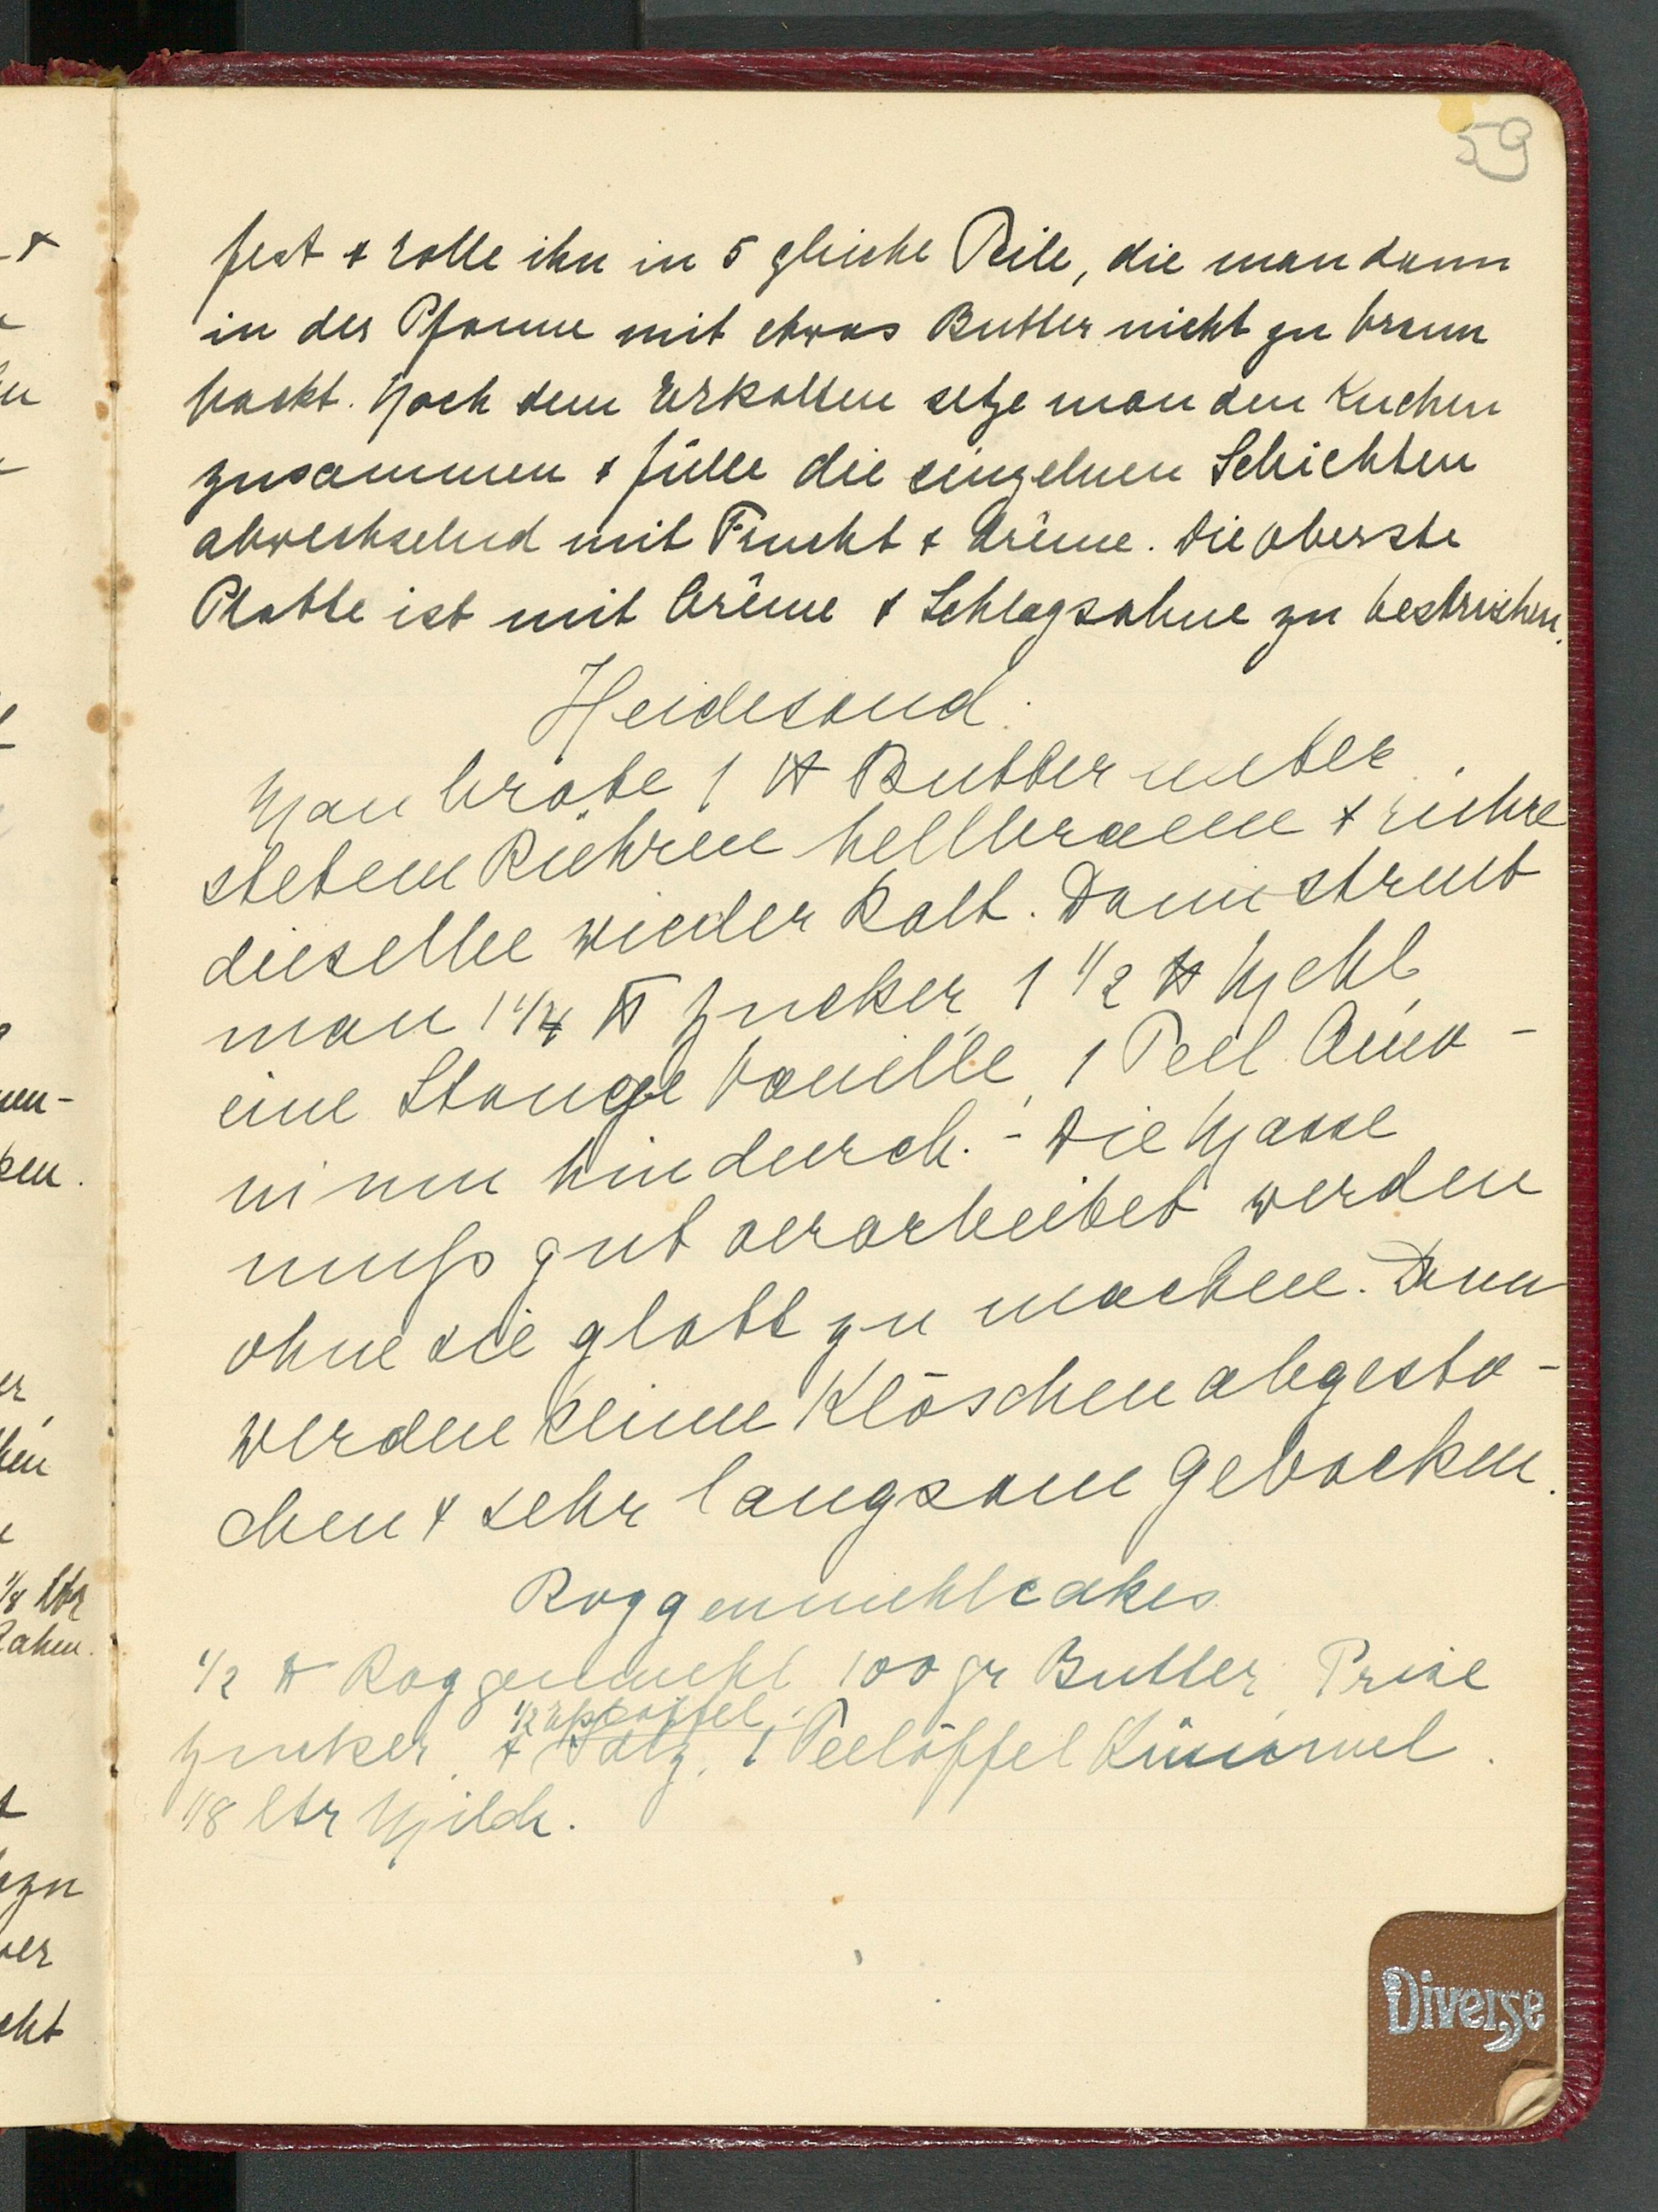 59
fest + rolle ihn in 5 gleiche Teile, die man dann
in der Pfanne mit etwas Butter nicht zu braun
backt. Nach dem Erkalten setze man den Kuchen
zusammen + fülle die einzelnen Schichten
abwechselnd mit Frucht + Crême. Die oberste
Platte ist mit Crême + Schlagsahne zu bestreichen.
Heidesand.
Man brate 1 ℔ Butter unter
stetem Rühren hellbraun + rühre
dieselbe wieder kalt. Dann streut
man 1 1/4 ℔ Zucker, 1 1/2 ℔ Mehl,
eine Stange Vanille, 1 Teel. Amo-
nium hindurch. - Die Masse
muß gut verarbeitet werden
ohne sie glatt zu machen. Dann
werden kleine Klöschen abgesto-
chen + sehr langsam gebacken.
Roggenmehlcakes
1/2 ℔ Roggenmehl 100 gr Butter, Prise
1/2 Eßlöffel
Zucker, + Salz, 1 Teelöffel Kümmel.
1/8 ltr Milch.
Diverse
en
en-
ken.
er,
hen
1/8 ltr
Rahm.
zu
er
cht